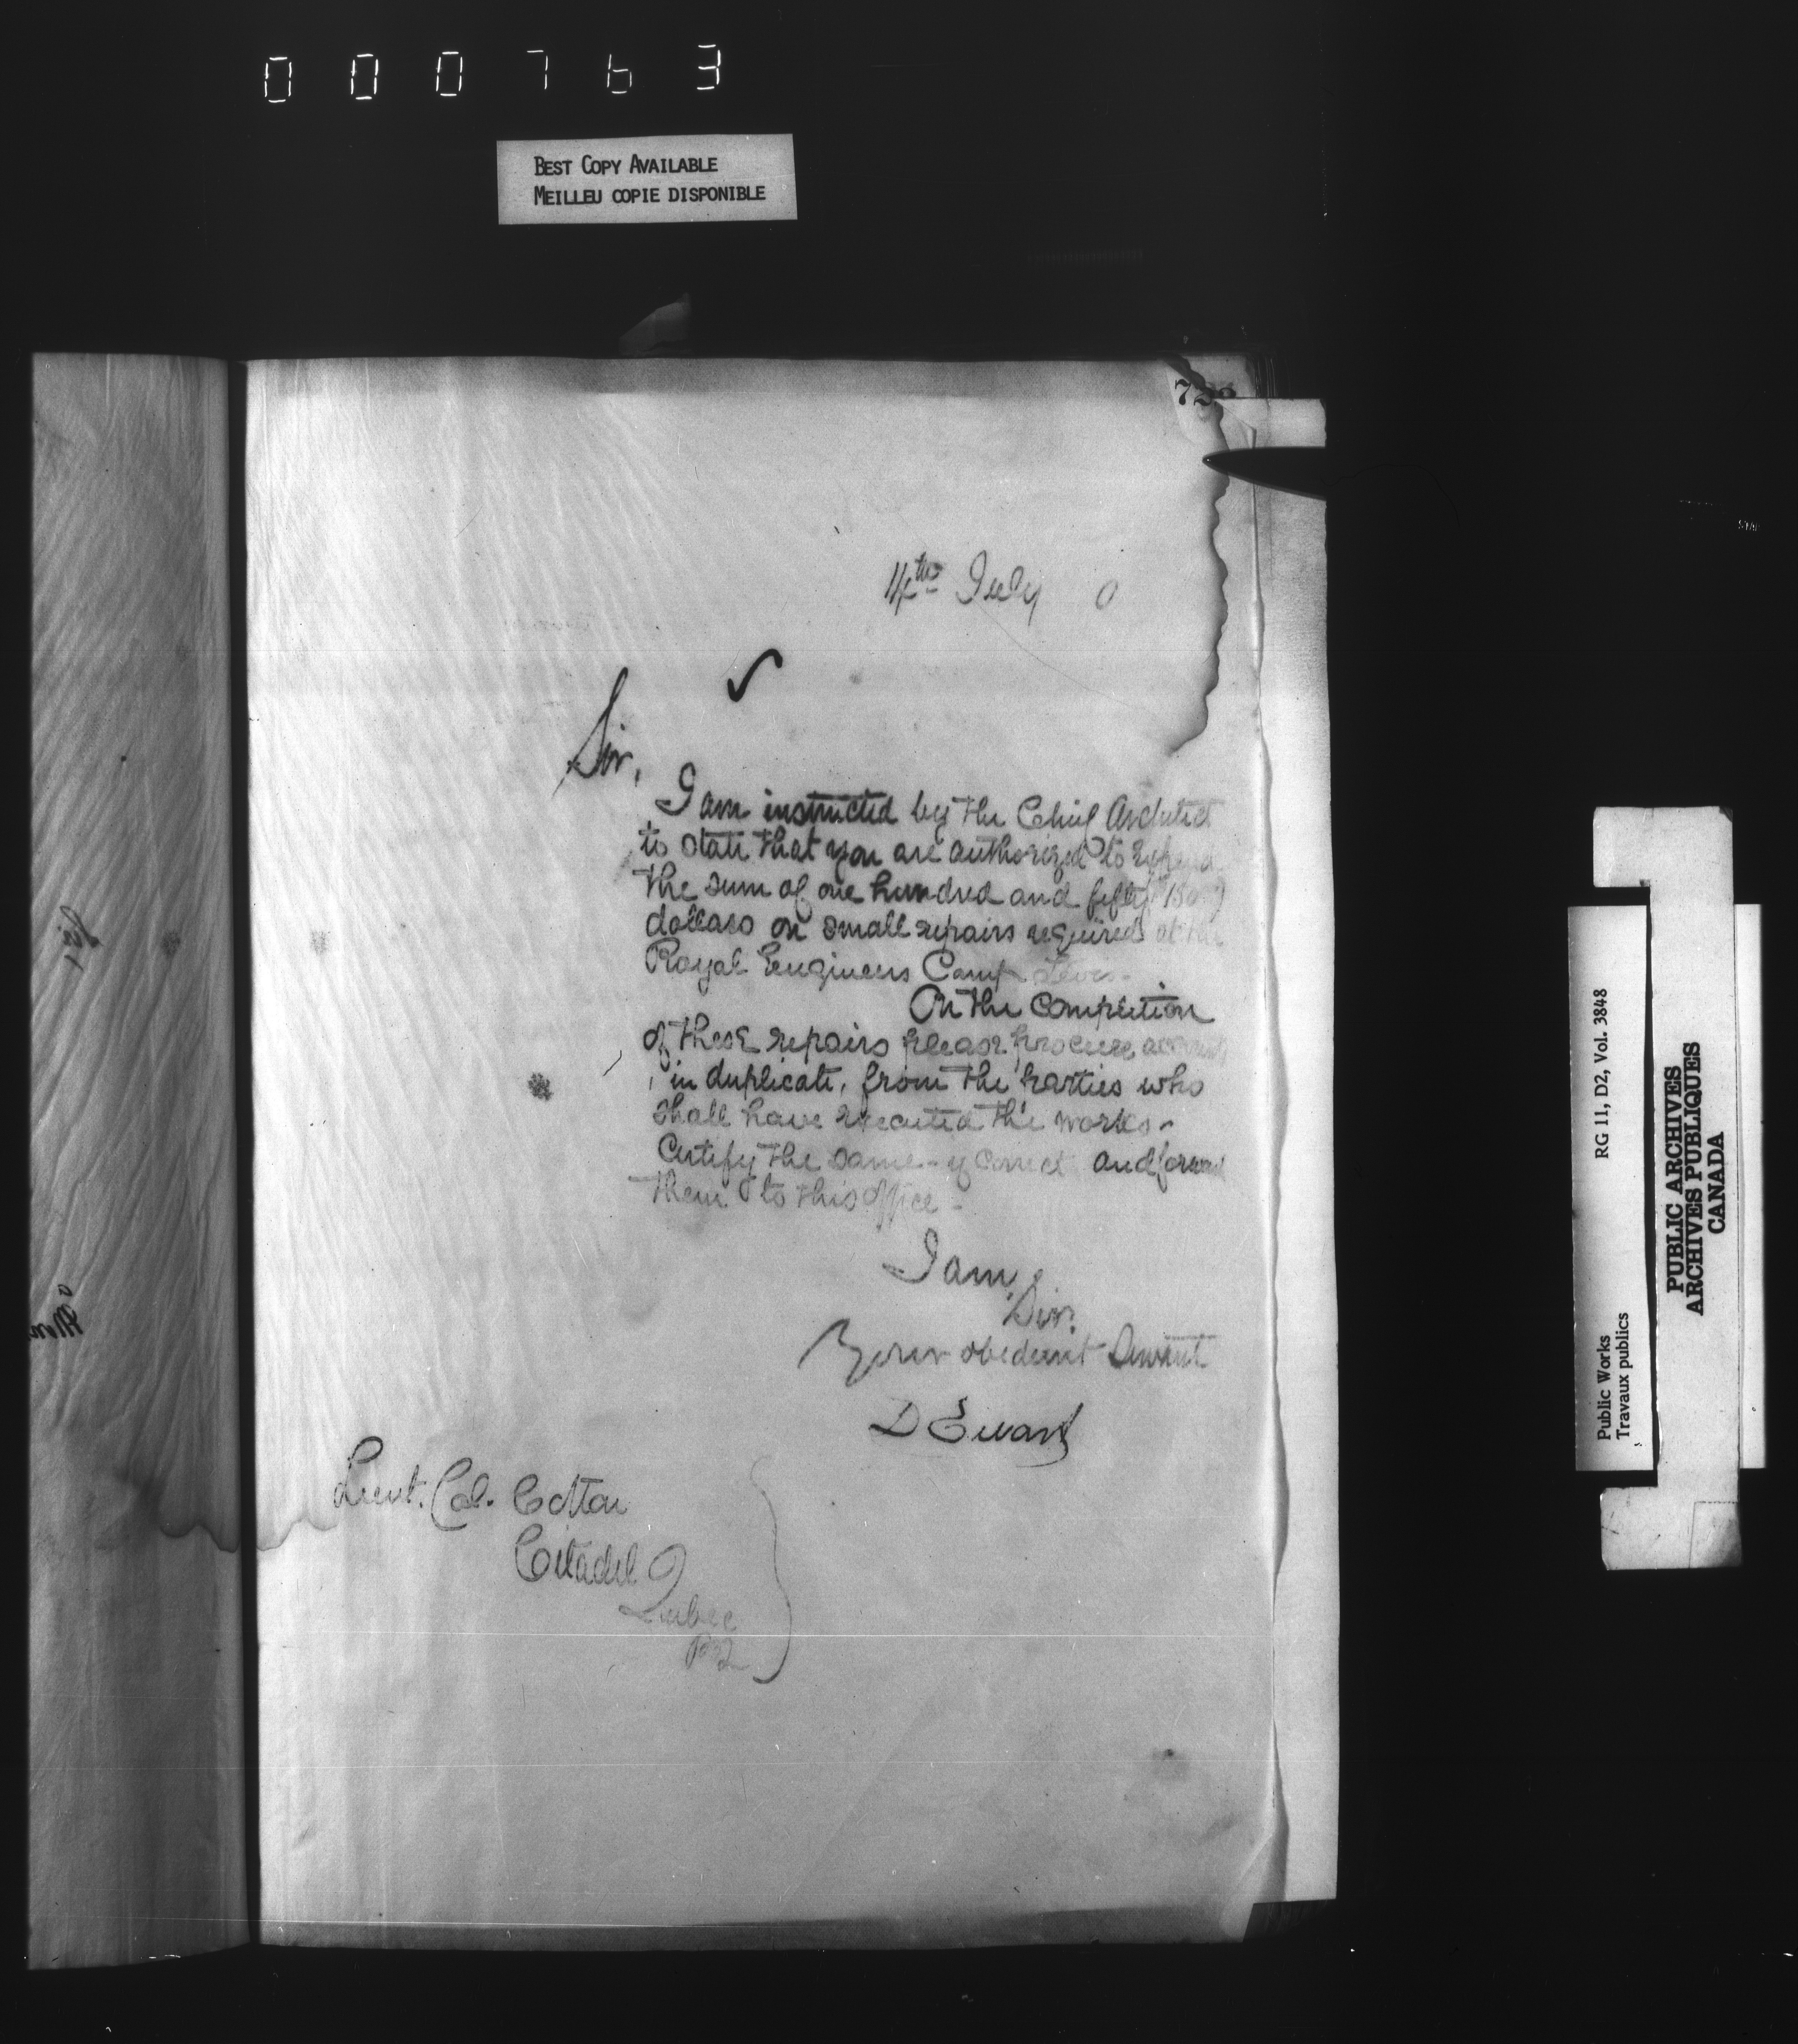 000763
BEST COPY AVAILABLE
MEILLEU COPIE DISPONIBLE
14th July 0
Sir,
I am instructed by the Chief Architect
to state that you are authorized to expend
the sum of one hundred and fifty (150)
dollars on small repairs required at the
Royal Engineers Camp Levis -
On the completion
of these repairs please procure accounts
, in duplicate, from the parties who
shall have executed the works -
Certify the same - if correct and forward
them to this office -
I am,
Sir,
Your obedient Servant
D Ewart
Lieut. Col. Cotton
Citadel
Quebec
P.Q.
Sir,
Public Works
Travaux publics
RG 11, D2, Vol. 3848
PUBLIC ARCHIVES
ARCHIVES PUBLIQUES
CANADA